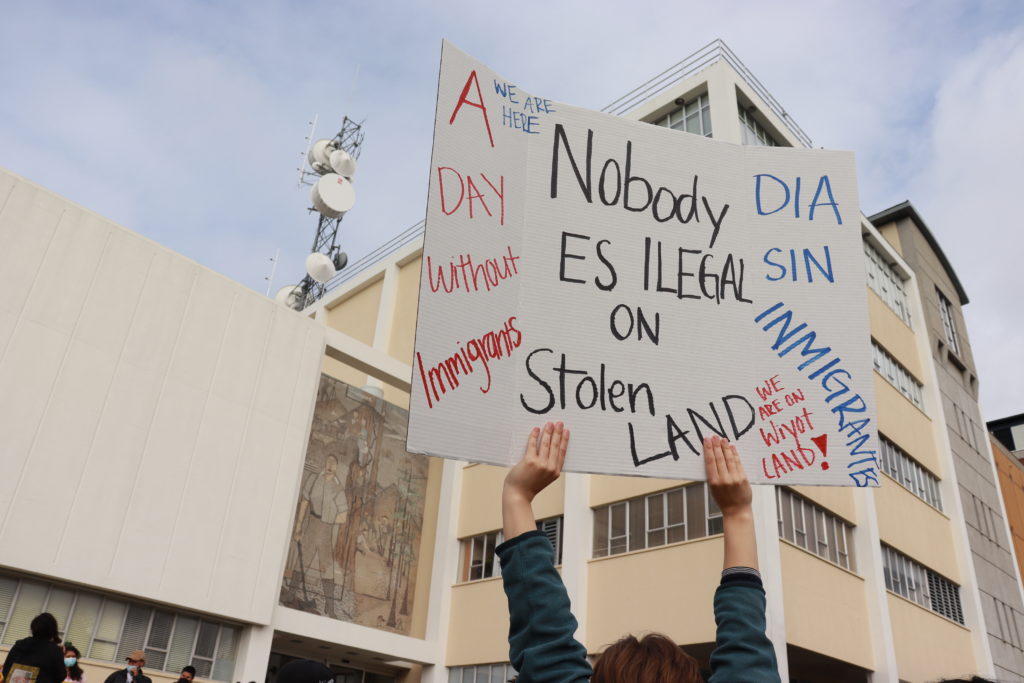 A
DAY
Without
Immigrants
WE ARE
HERE
Nobody
ES ILEGAL
ON
Stolen
LAND
DIA
SIN
INMIGRANTES
WE
ARE ON
Wiyot
LAND!